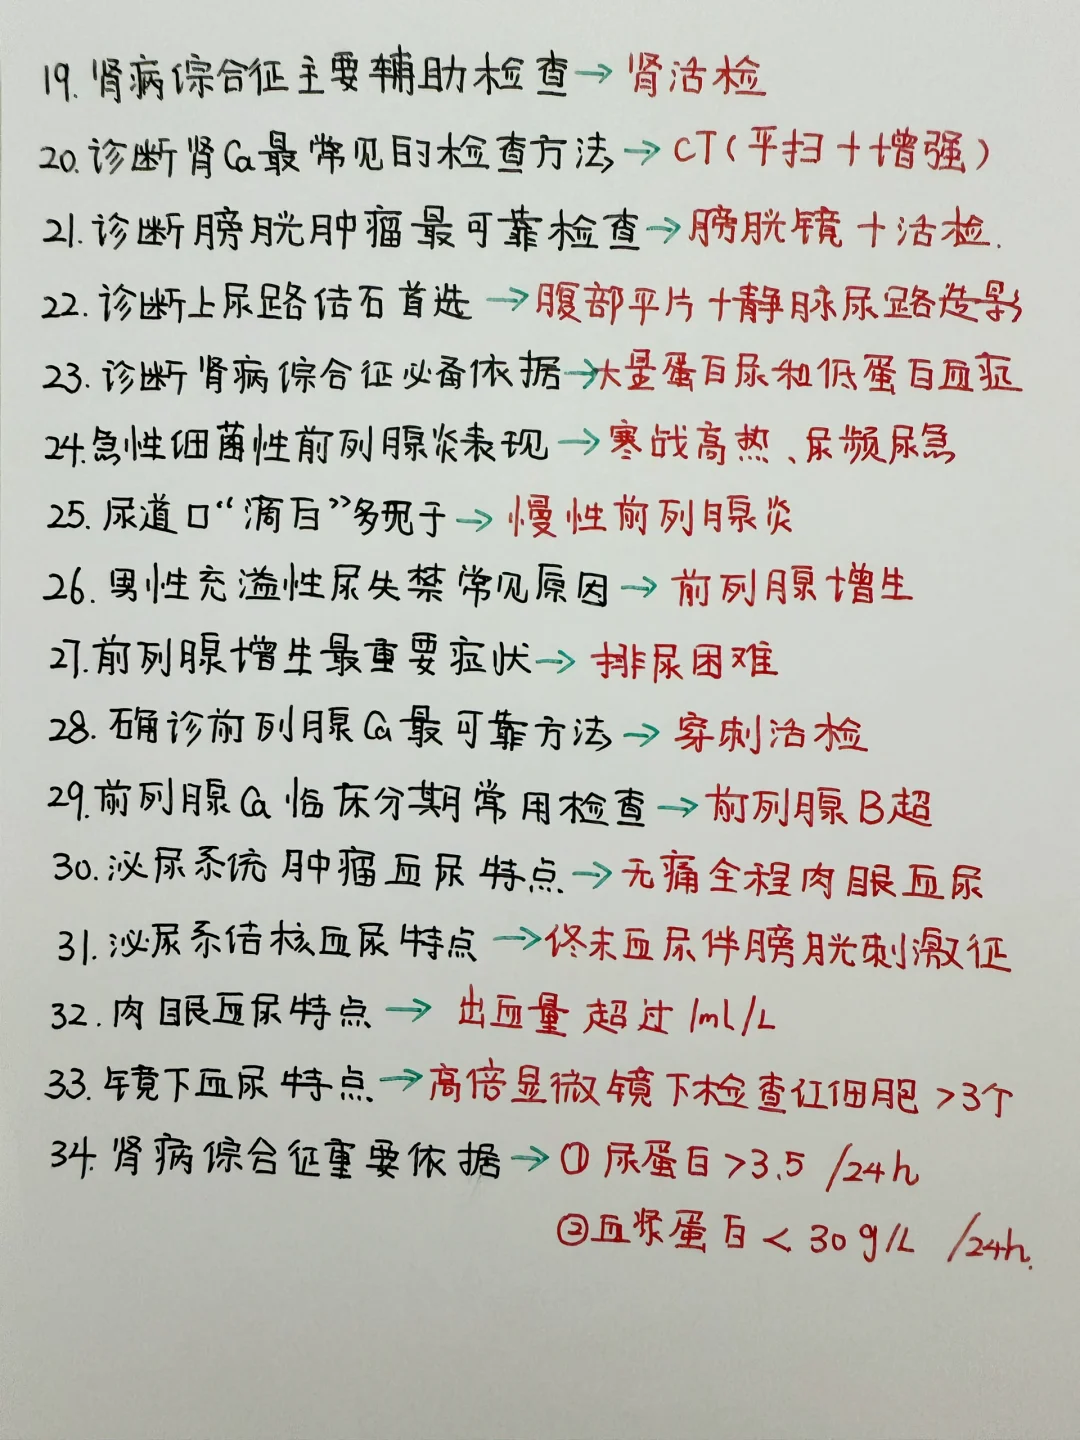 19. 肾病综合征主要辅助检查→肾活检
20. 诊断肾Ca最常见的检查方法→CT(平扫+增强)
21. 诊断膀胱肿瘤最可靠检查→膀胱镜+活检.
22. 诊断上尿路结石首选→腹部平片+静脉尿路造影
23. 诊断肾病综合征必备依据→大量蛋白尿和低蛋白血症
24. 急性细菌性前列腺炎表现→寒战高热、尿频尿急
25. 尿道口“滴白”多见于→慢性前列腺炎
26. 男性充溢性尿失禁常见原因→前列腺增生
27. 前列腺增生最重要症状→排尿困难
28. 确诊前列腺Ca最可靠方法→穿刺活检
29. 前列腺Ca临床分期常用检查→前列腺B超
30. 泌尿系统肿瘤血尿特点→无痛全程肉眼血尿
31. 泌尿系结核血尿特点→终末血尿伴膀胱刺激征
32. 肉眼血尿特点→出血量超过1ml/L
33. 镜下血尿特点→高倍显微镜下检查红细胞>3个
34. 肾病综合征重要依据→①尿蛋白>3.5 /24h
②血浆蛋白<30g/L /24h.